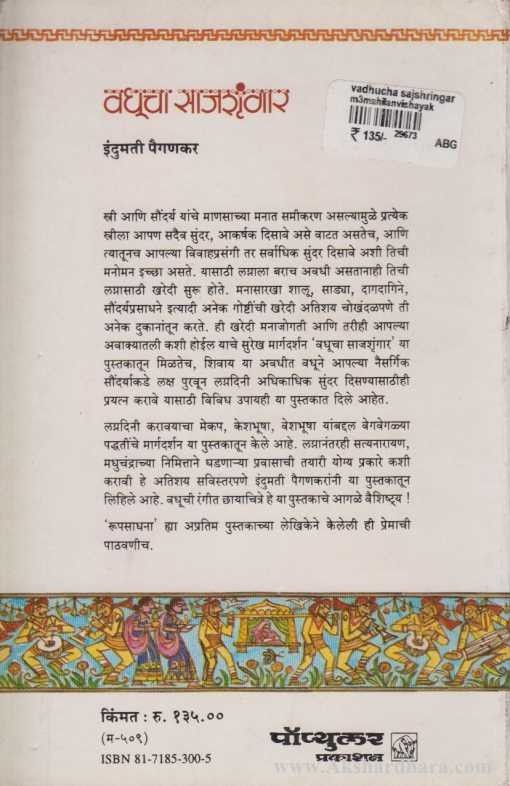 वधूचा साजशृंगार
इंदुमती पैगणकर
vadhucha sajshringar
m3mahilanvishayak
₹ 135/- 29673
ABG
स्त्री आणि सौंदर्य यांचे माणसाच्या मनात समीकरण असल्यामुळे प्रत्येक
स्त्रीला आपण सदैव सुंदर, आकर्षक दिसावे असे वाटत असतेच, आणि
त्यातूनच आपल्या विवाहप्रसंगी तर सर्वाधिक सुंदर दिसावे अशी तिची
मनोमन इच्छा असते. यासाठी लग्नाला बराच अवधी असतानाही तिची
लग्नासाठी खरेदी सुरू होते. मनासारखा शालू, साड्या, दागदागिने,
सौंदर्यप्रसाधने इत्यादी अनेक गोष्टींची खरेदी अतिशय चोखंदळपणे ती
अनेक दुकानांतून करते. ही खरेदी मनाजोगती आणि तरीही आपल्या
अवाक्यातली कशी होईल याचे सुरेख मार्गदर्शन ‘वधूचा साजशृंगार’ या
पुस्तकातून मिळतेच, शिवाय या अवधीत वधूने आपल्या नैसर्गिक
सौंदर्याकडे लक्ष पुरवून लग्नदिनी अधिकाधिक सुंदर दिसण्यासाठीही
प्रयत्न करावे यासाठी विविध उपायही या पुस्तकात दिले आहेत.
लग्नदिनी करावयाचा मेकप, केशभूषा, वेशभूषा यांबद्दल वेगवेगळ्या
पद्धतींचे मार्गदर्शन या पुस्तकातून केले आहे. लग्नानंतरही सत्यनारायण,
मधुचंद्राच्या निमित्ताने घडणाऱ्या प्रवासाची तयारी योग्य प्रकारे कशी
करावी हे अतिशय सविस्तरपणे इंदुमती पैगणकरांनी या पुस्तकातून
लिहिले आहे. वधूची रंगीत छायाचित्रे हे या पुस्तकाचे आगळे वैशिष्ट्य !
‘रूपसाधना’ ह्या अप्रतिम पुस्तकाच्या लेखिकेने केलेली ही प्रेमाची
पाठवणीच.
किंमत : रु. १३५.००
(म-५०९)
ISBN 81-7185-300-5
पॉप्युलर
प्रकाशन
www.Akshardhara.com